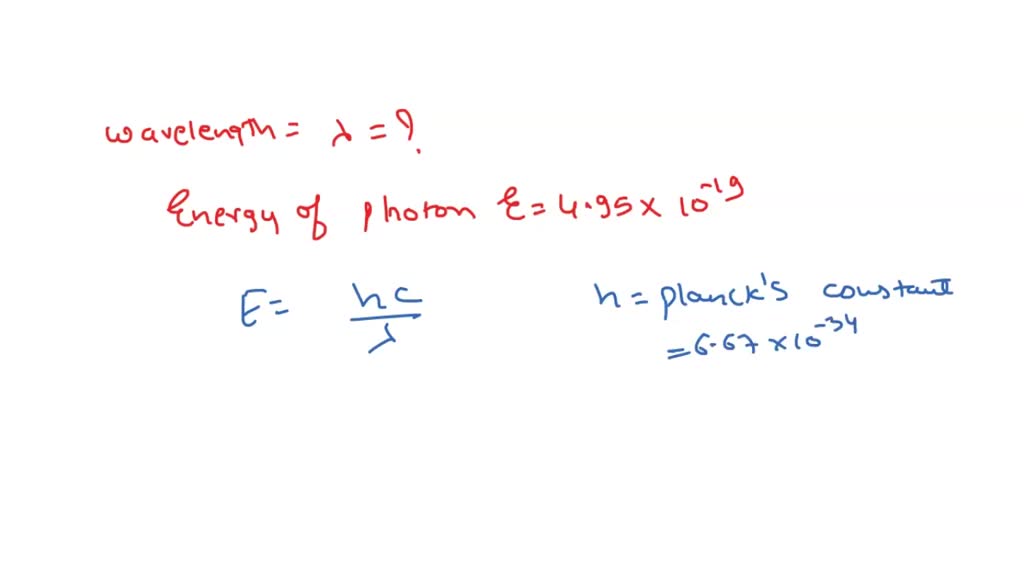 wavelength = λ = ?
Energy of photon E = 4.95 × 10⁻¹⁹
E = hc/λ
h = planck's constant
= 6.67 × 10⁻³⁴